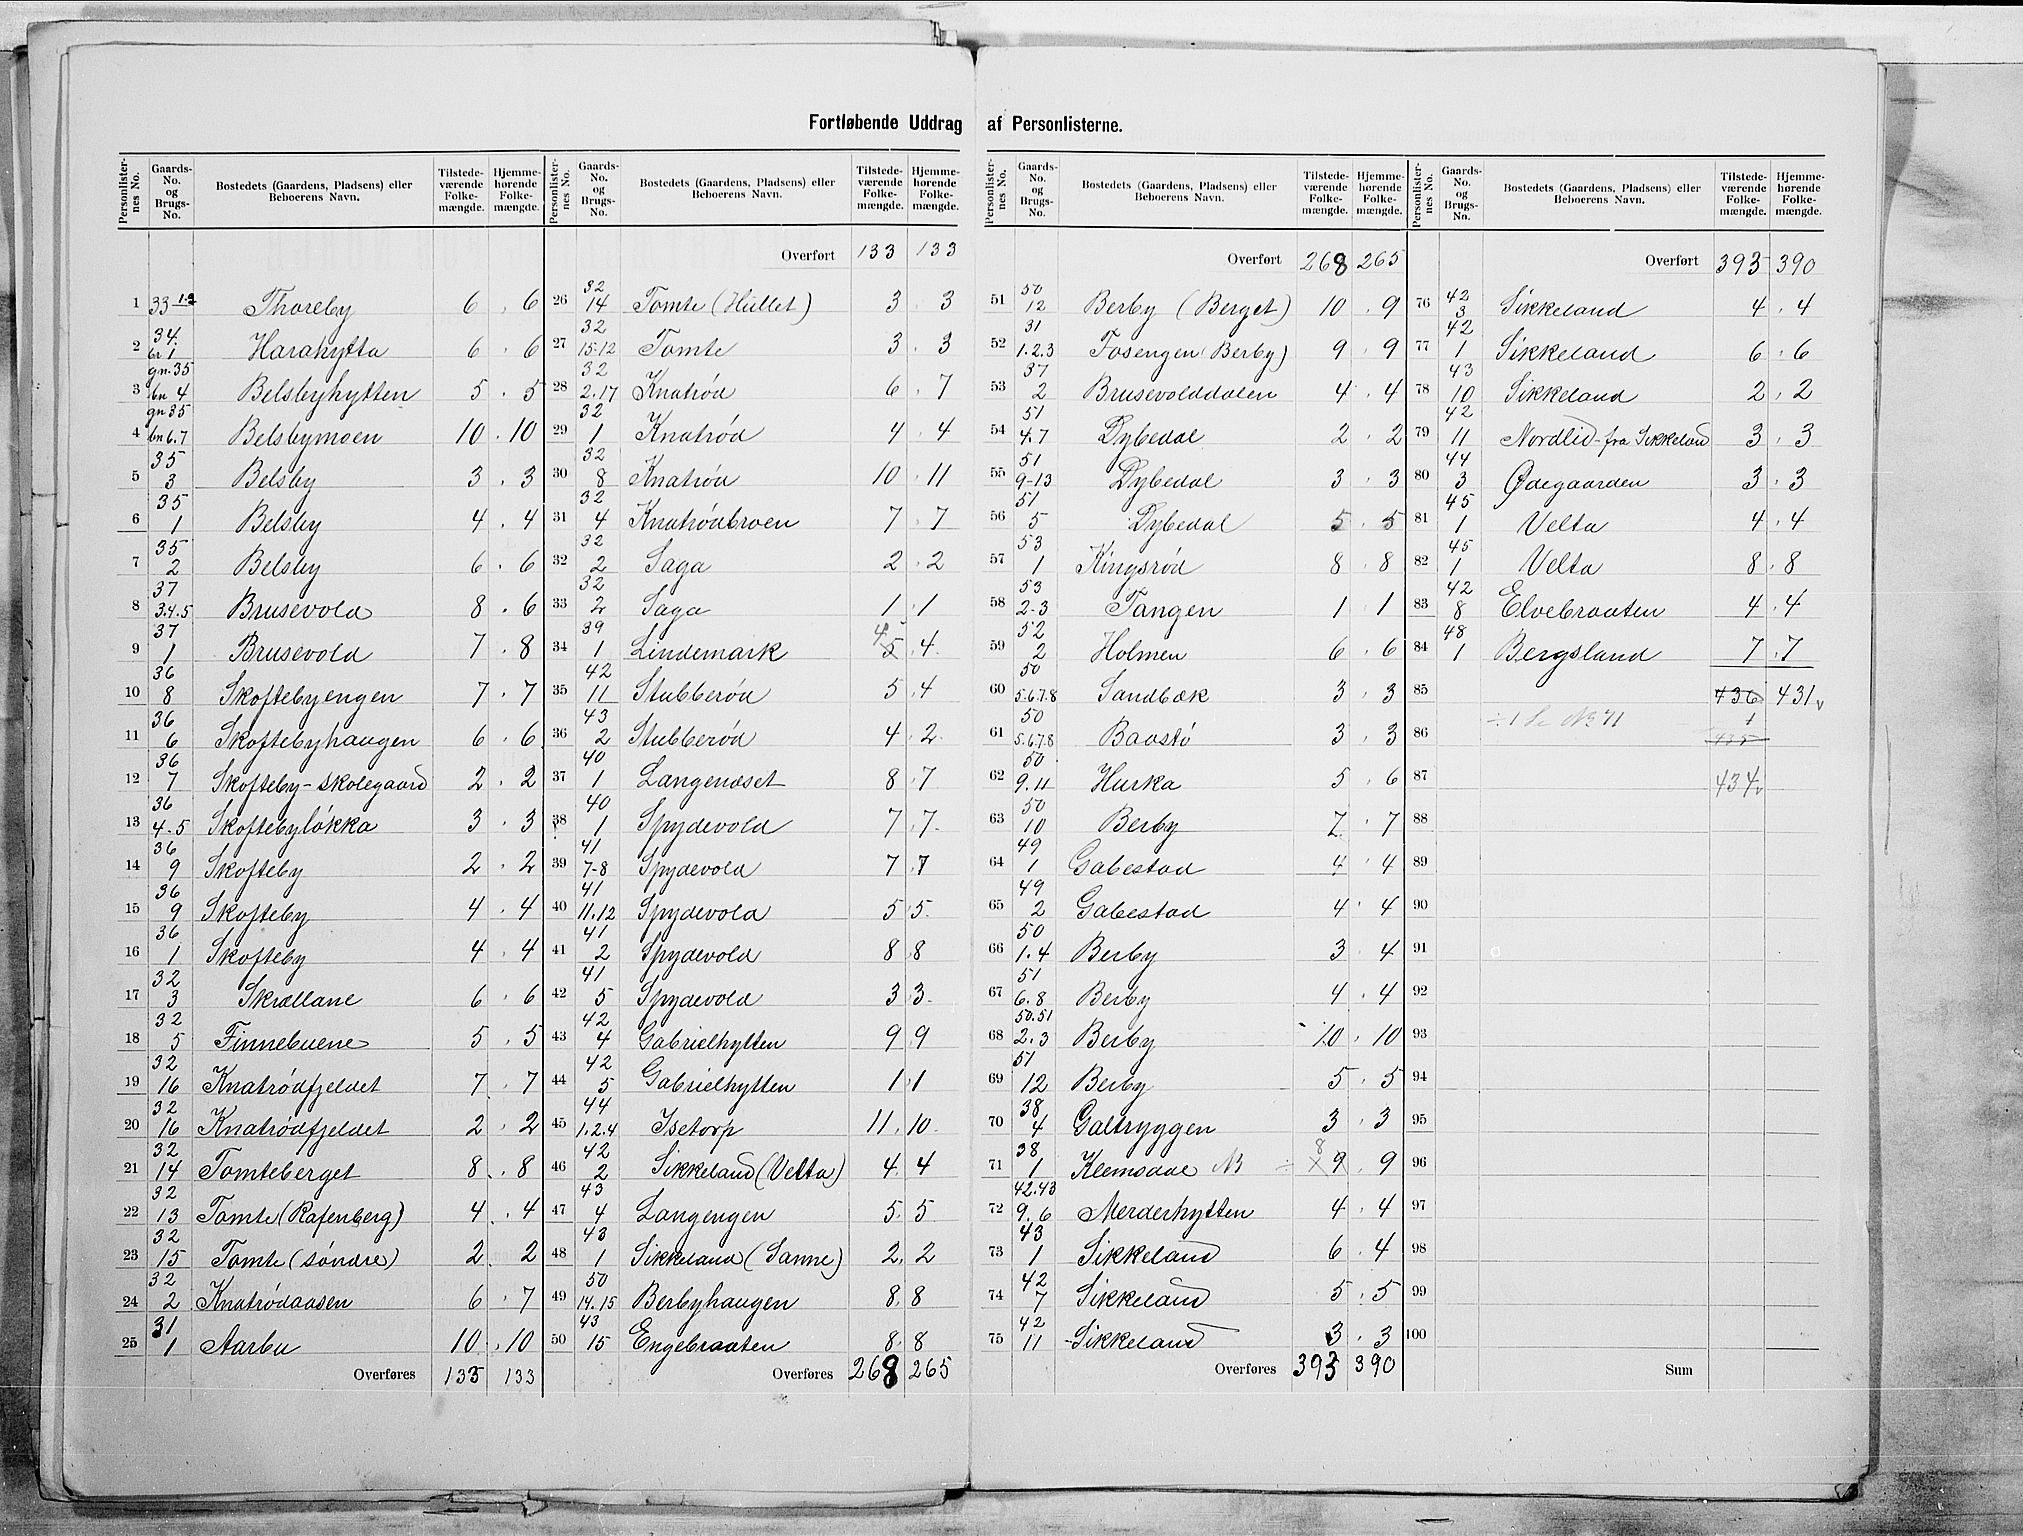 Fortløbende Uddrag af Personlisterne.
Personlister-nes No. | Gaards-No. og Brugs-No. | Bostedets (Gaardens, Pladsens) eller Beboerens Navn. | Tilstede-værende Folke-mængde. | Hjemme-hørende Folke-mængde.
1 33 1.2 Thoreby 6 . 6
2 34. br 1 Harahytta 6 . 6
3 gn. 35 bn 4 Belsbyhytten 5 . 5
4 gn 35 bn 6.7 Belsbymoen 10 . 10
5 35 3 Belsby 3 . 3
6 35 1 Belsby 4 . 4
7 35 2 Belsby 6 . 6
8 37 3.4.5 Brusevold 8 . 6
9 37 1 Brusevold 7 . 8
10 36 8 Skoftebyengen 7 . 7
11 36 6 Skoftebyhaugen 6 . 6
12 36 7 Skofteby-skolegaard 2 . 2
13 36 4-5 Skoftebyløkka 3 . 3
14 36 9 Skofteby 2 . 2
15 36 9 Skofteby 4 . 4
16 36 1 Skofteby 4 . 4
17 32 3 Skrællane 6 . 6
18 32 5 Finnebuene 5 . 5
19 32 16 Knatrødfjeldet 7 . 7
20 32 16 Knatrødfjeldet 2 . 2
21 32 14 Tomteberget 8 . 8
22 32 13 Tomte (Rafenberg) 4 . 4
23 32 15 Tomte (søndre) 2 . 2
24 32 2 Knatrødaasen 6 . 7
25 31 1 Aarbu 10 . 10
Overføres 133 133
Personlister-nes No. | Gaards-No. og Brugs-No. | Bostedets (Gaardens, Pladsens) eller Beboerens Navn. | Tilstede-værende Folke-mængde. | Hjemme-hørende Folke-mængde.
Overført 133 133
26 32 14 Tomte (Hullet) 3 . 3
27 32 15.12 Tomte 3 . 3
28 32 2.17 Knatrød 6 . 7
29 32 1 Knatrød 4 . 4
30 32 8 Knatrød 10 . 11
31 32 4 Knatrødbroen 7 . 7
32 32 2 Saga 2 . 2
33 32 2 Saga 1 . 1
34 39 1 Lindemark 4 5 . 4
35 42 11 Stubberød 5 . 4
36 43 2 Stubberød 4 . 2
37 40 1 Langenæset 8 . 7
38 40 1 Spydevold 7 . 7
39 41 7-8 Spydevold 7 . 7
40 41 11.12 Spydevold 5 5
41 41 2 Spydevold 8 8
42 41 5 Spydevold 3 3
43 42 4 Gabrielhytten 9 9
44 42 5 Gabrielhytten 1 . 1
45 44 1.2.4 Isetorp 11 . 10
46 42 2 Sikkeland (Velta) 4 . 4
47 43 4 Langengen 5 . 5
48 43 1 Sikkeland (Sanne) 2 . 2
49 50 14.15 Berbyhaugen 8 . 8
50 43 15 Engebraaten 8 . 8
Overføres 268 265
Personlister-nes No. | Gaards-No. og Brugs-No. | Bostedets (Gaardens, Pladsens) eller Beboerens Navn. | Tilstede-værende Folke-mængde. | Hjemme-hørende Folke-mængde.
Overført 268 265
51 50 12 Berby (Berget) 10 . 9
52 31 1.2.3 Fosengen (Berby) 9 . 9
53 37 2 Brusevolddalen 4 . 4
54 51 4.7 Dybedal 2 . 2
55 51 9-13 Dybedal 3 . 3
56 51 5 Dybedal 5 . 5
57 53 1 Kingsrød 8 . 8
58 53 2-3 Tangen 1 . 1
59 52 2 Holmen 6 . 6
60 50 5.6.7.8 Sandbæk 3 . 3
61 50 5.6.7.8 Baastø 3 . 3
62 50 9.11 Hurka 5 . 6
63 50 10 Berby 7 . 7
64 49 1 Gabestad 4 . 4
65 49 2 Gabestad 4 . 4
66 50 1.4 Berby 3 . 4
67 51 6.8 Berby 4 . 4
68 50.51 2.3 Berby 10 . 10
69 51 12 Berby 5 . 5
70 38 4 Galtryggen 3 . 3
71 38 1 Klemsdal NB ÷ 8 9 . 9
72 42.43 9.6 Merderhytten 4 . 4
73 43 1 Sikkeland 6 . 4
74 42 7 Sikkeland 5 . 5
75 42 11 Sikkeland 3 . 3
Overføres 393 390
Personlister-nes No. | Gaards-No. og Brugs-No. | Bostedets (Gaardens, Pladsens) eller Beboerens Navn. | Tilstede-værende Folke-mængde. | Hjemme-hørende Folke-mængde.
Overført 393 390
76 42 3 Sikkeland 4 . 4
77 42 1 Sikkeland 6 . 6
78 43 10 Sikkeland 2 . 2
79 42 11 Nordlid - fra Sikkeland 3 . 3
80 44 3 Ødegaarden 3 . 3
81 45 1 Velta 4 . 4
82 45 1 Velta 8 . 8
83 42 8 Elvebraaten 4 . 4
84 48 1 Bergsland 7 . 7
85 436 431
86 ÷ 1 Se No 71 1 435
87 434
88
89
90
91
92
93
94
95
96
97
98
99
100
Sum